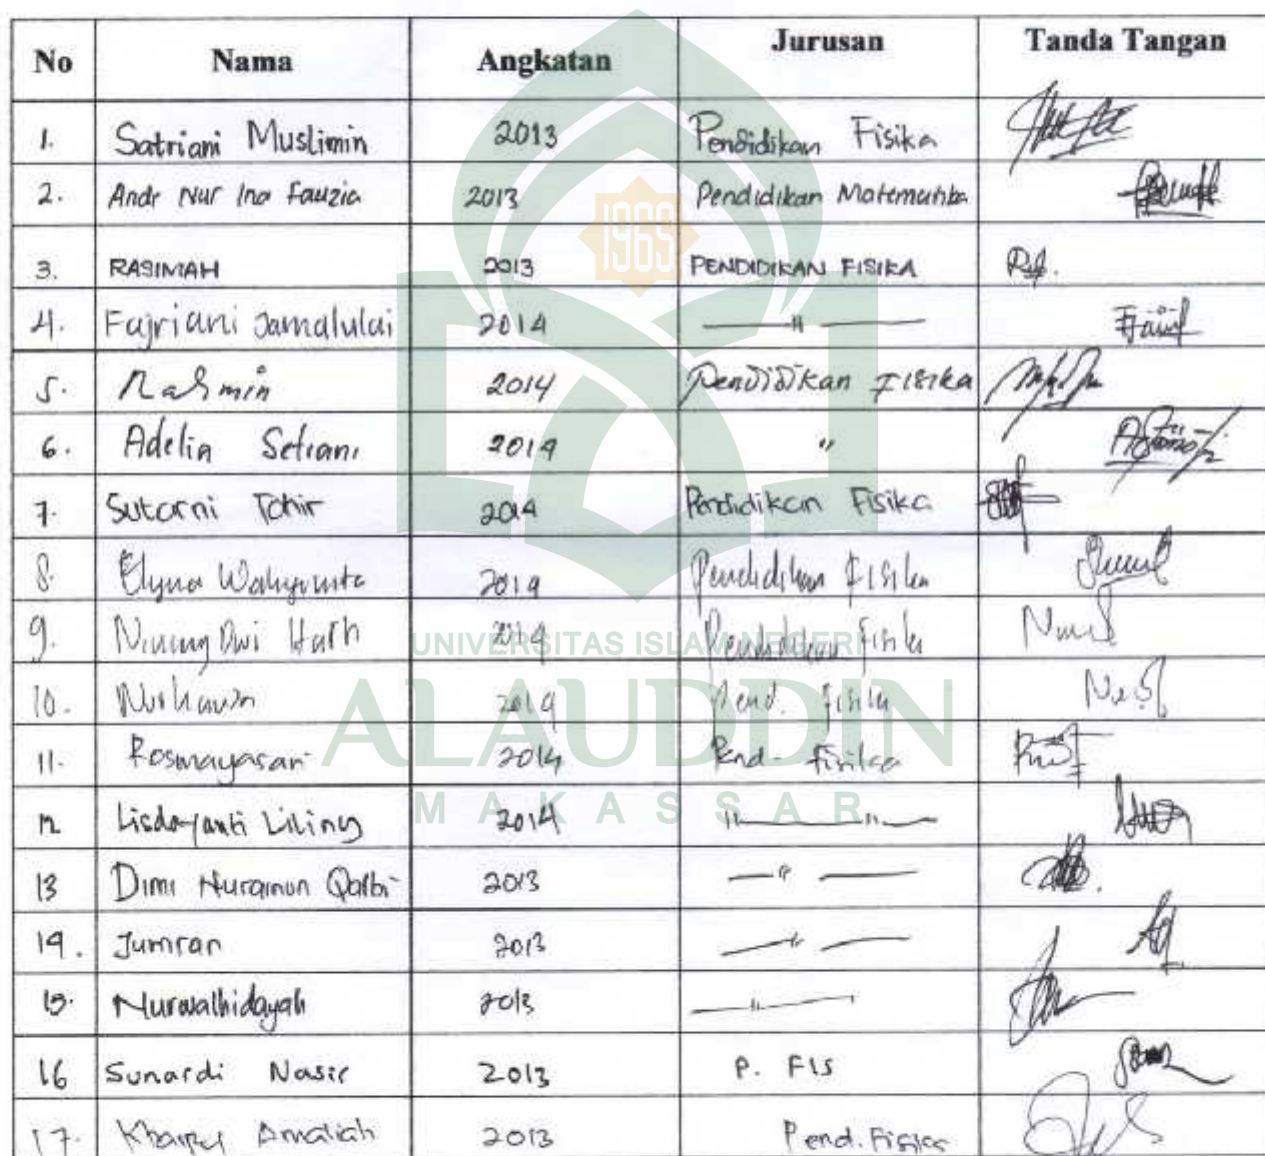 No Nama Angkatan Jurusan Tanda Tangan
1. Satriani Muslimin 2013 Pendidikan Fisika
2. Andi Nur Ina Fauzia 2013 Pendidikan Matematika
3. RASIMAH 2013 PENDIDIKAN FISIKA
4. Fajriani Jamalulai 2014 —"—
5. Rasmin 2014 Pendidikan Fisika
6. Adelia Setiani 2014 "
7. Sutarni Tahir 2014 Pendidikan Fisika
8. Elyna Wahyunita 2014 Pendidikan Fisika
9. Nining Dwi 2014 Pendidikan Fisika
10. 2014 Pend. Fisika
11. Rosmayasari 2014 Pend. Fisika
12 Lisdayanti Liling 2014 "——"—
13 Dimi Nurainun Qalbi 2013 —"—
14. Jumran 2013 —"—
15. Nurwalhidayah 2013 —"—
16 Sunardi Nasir 2013 P. FIS
17. Amaliah 2013 Pend. Fisika
1965
UNIVERSITAS ISLAM NEGERI
ALAUDDIN
MAKASSAR